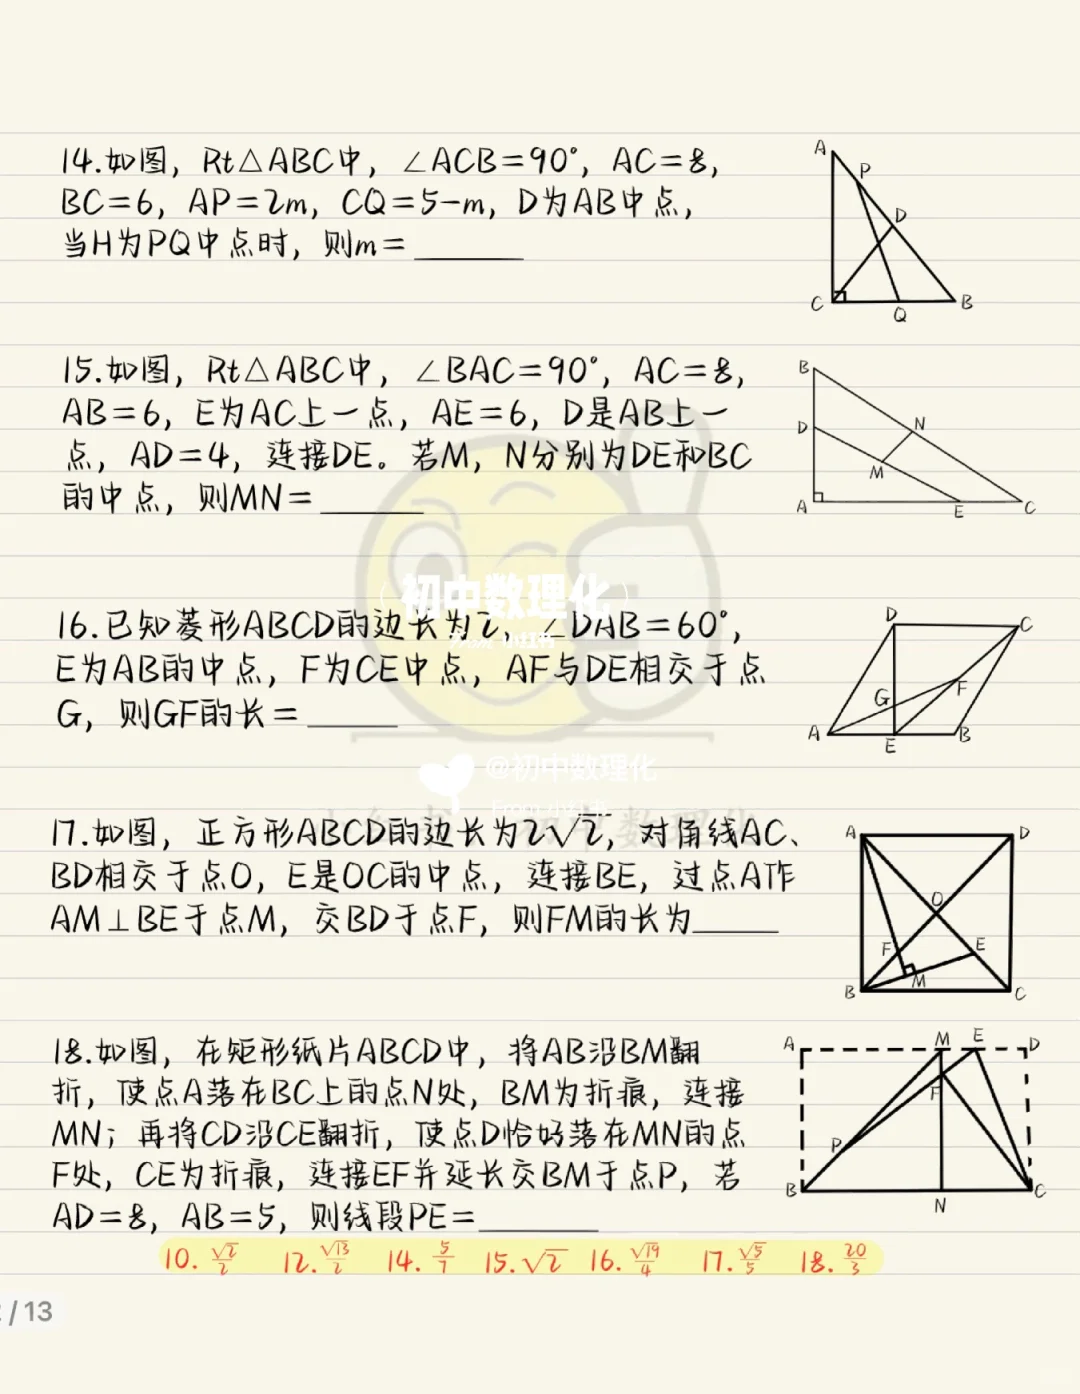 14.如图，Rt△ABC中，∠ACB=90°，AC=8，
BC=6，AP=2m，CQ=5-m，D为AB中点，
当H为PQ中点时，则m=______
A
P
D
C
Q
B
15.如图，Rt△ABC中，∠BAC=90°，AC=8，
AB=6，E为AC上一点，AE=6，D是AB上一
点，AD=4，连接DE。若M，N分别为DE和BC
的中点，则MN=______
B
D
N
M
A
E
C
初中数理化
16.已知菱形ABCD的边长为2，∠DAB=60°，
E为AB的中点，F为CE中点，AF与DE相交于点
G，则GF的长=______
D
C
G
F
A
E
B
@初中数理化
From 小红书
17.如图，正方形ABCD的边长为2√2，对角线AC、
BD相交于点O，E是OC的中点，连接BE，过点A作
AM⊥BE于点M，交BD于点F，则FM的长为______
A
D
O
F
E
M
B
C
18.如图，在矩形纸片ABCD中，将AB沿BM翻
折，使点A落在BC上的点N处，BM为折痕，连接
MN；再将CD沿CE翻折，使点D恰好落在MN的点
F处，CE为折痕，连接EF并延长交BM于点P，若
AD=8，AB=5，则线段PE=______
A
M
E
D
F
P
B
N
C
10. √2/2 12. √13/2 14. 5/7 15. √2 16. √19/4 17. √5/5 18. 20/3
/13